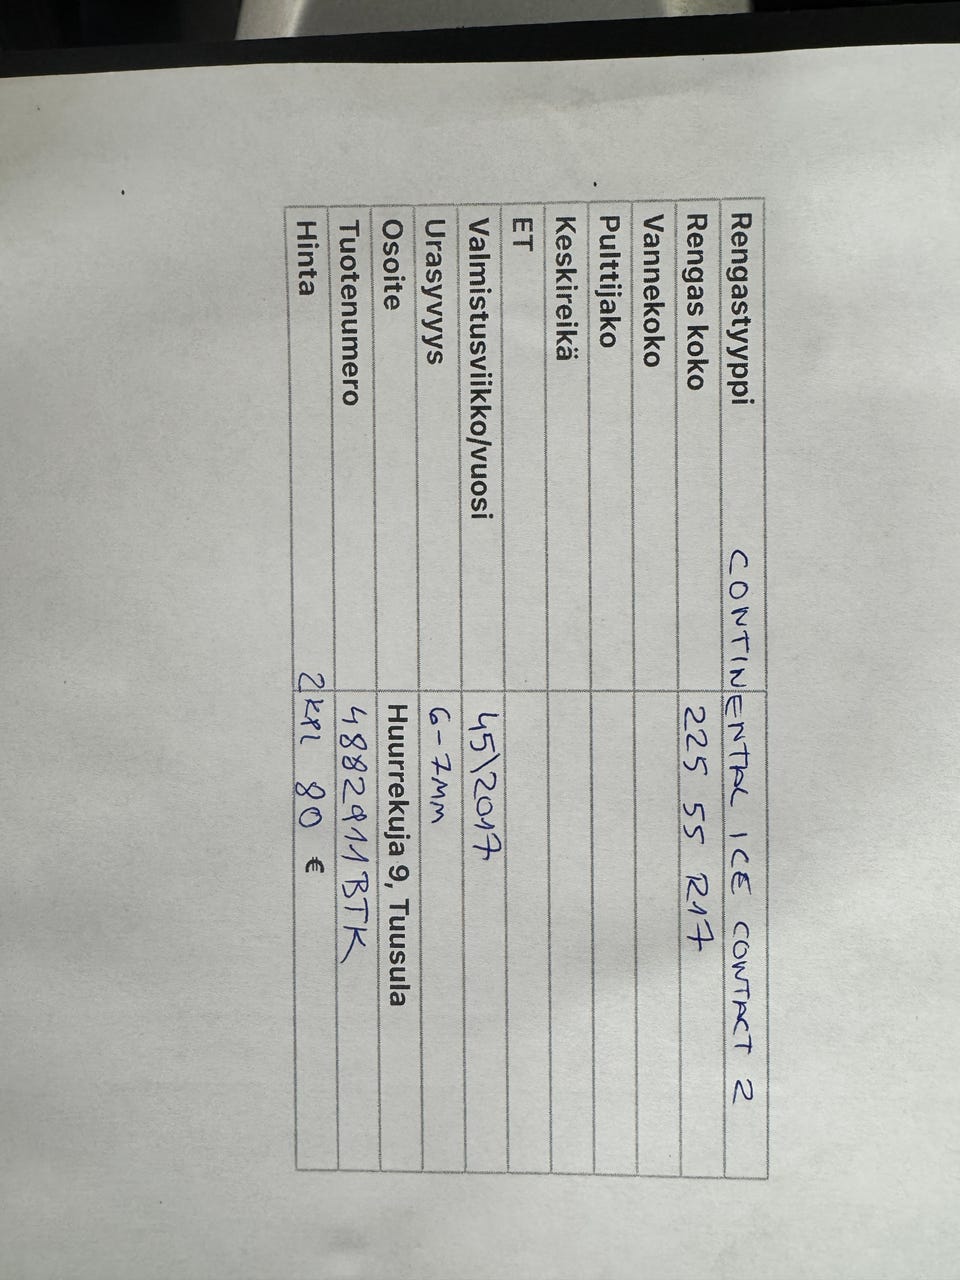 Rengastyyppi CONTINENTAL ICE CONTACT 2
Rengas koko 225 55 R17
Vannekoko
Pulttijako
Keskireikä
ET
Valmistusviikko/vuosi 45\2017
Urasyvyys 6-7MM
Osoite Huurrekuja 9, Tuusula
Tuotenumero 4882911BTK
Hinta 2KPL 80 €